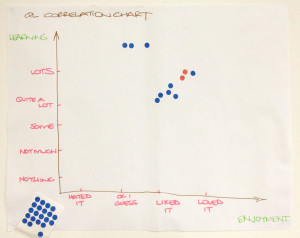 QL CORRELATION CHART
LEARNING
LOTS
QUITE A
LOT
SOME
NOT MUCH
NOTHING
HATED
IT
OK I
GUESS
LIKED
IT
LOVED
IT
ENJOYMENT